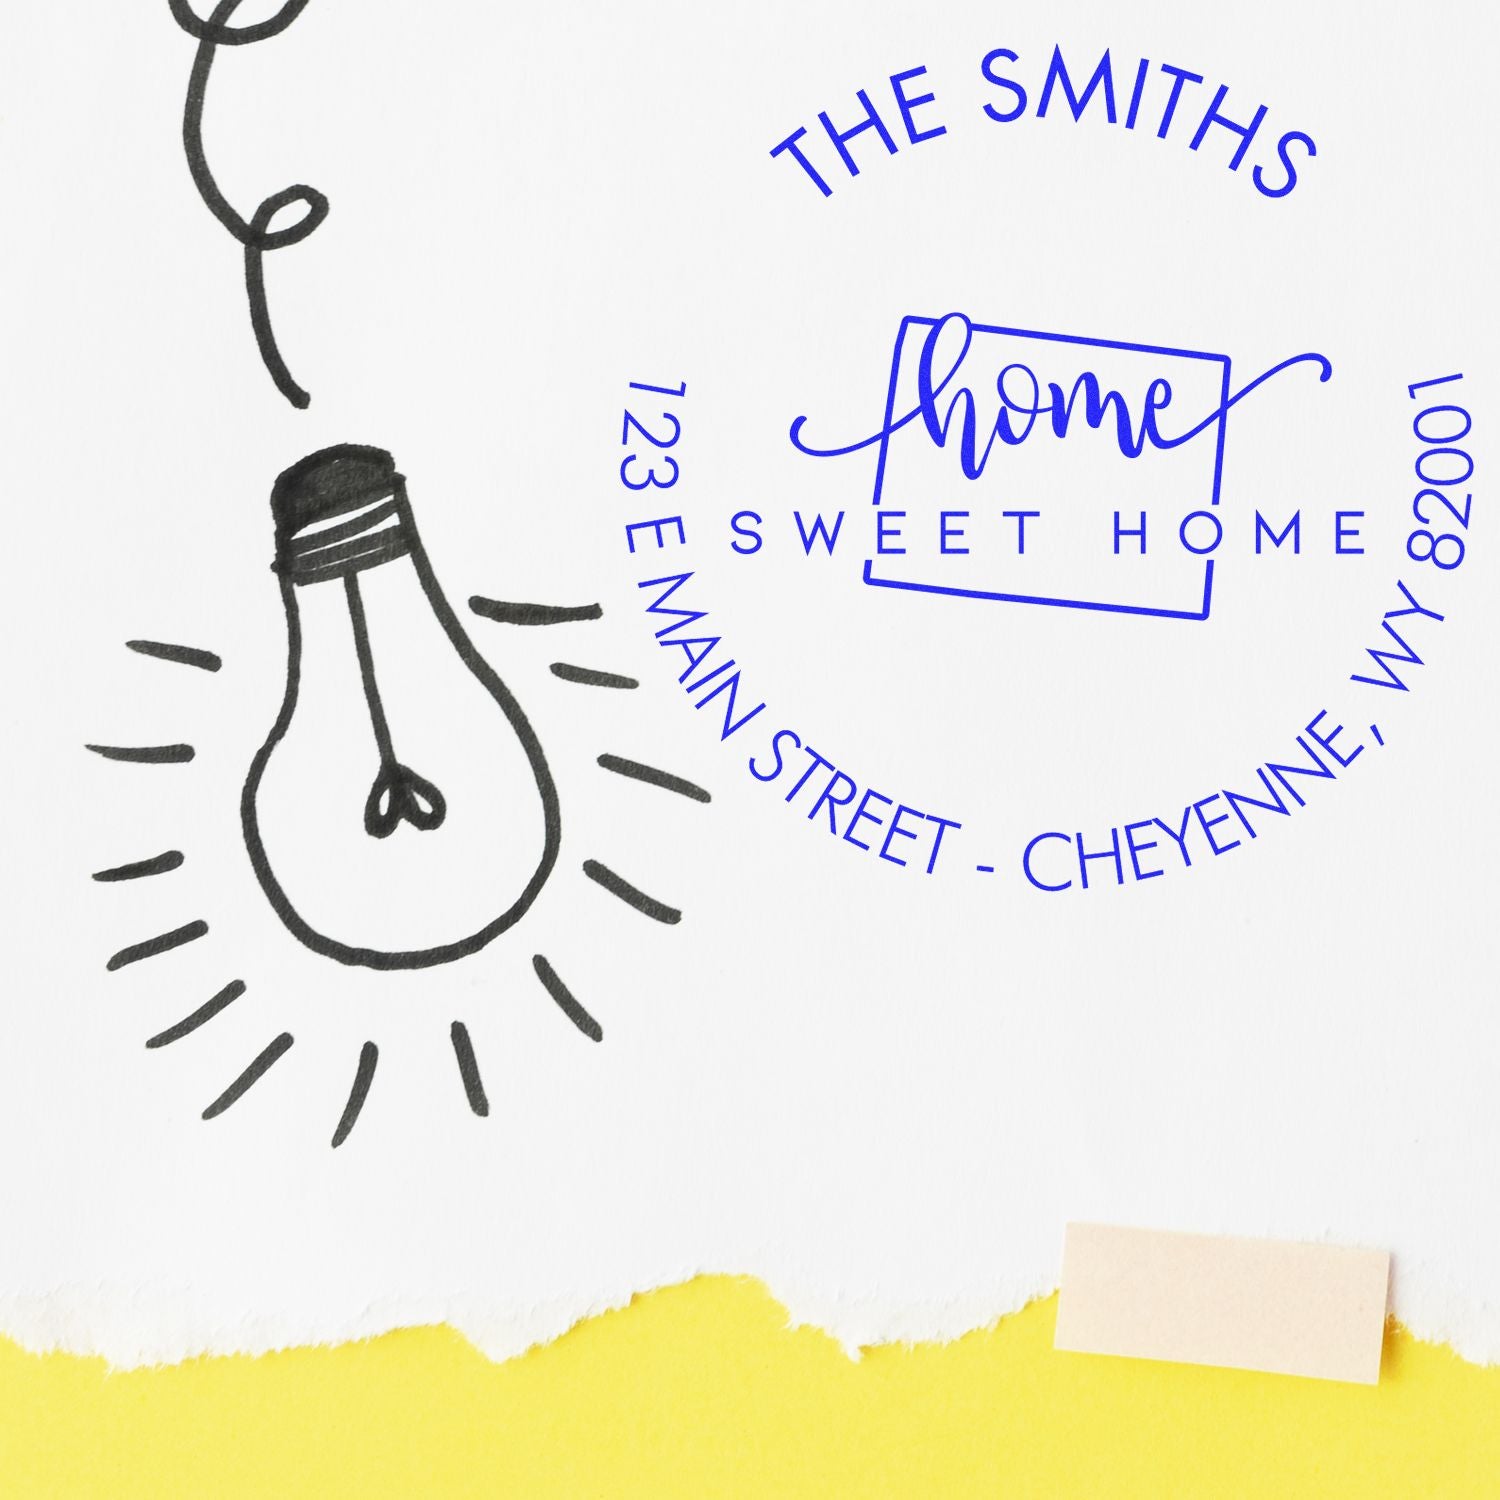 THE SMITHS
home
SWEET HOME
123 E MAIN STREET - CHEYENNE, WY 82001